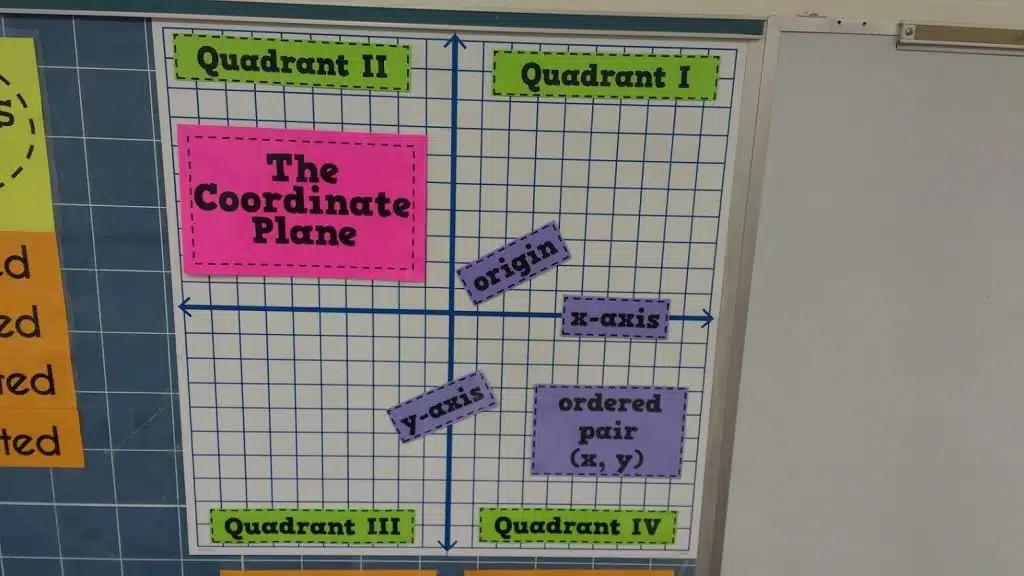 Quadrant II
Quadrant I
The
Coordinate
Plane
origin
x-axis
y-axis
ordered
pair
(x, y)
Quadrant III
Quadrant IV